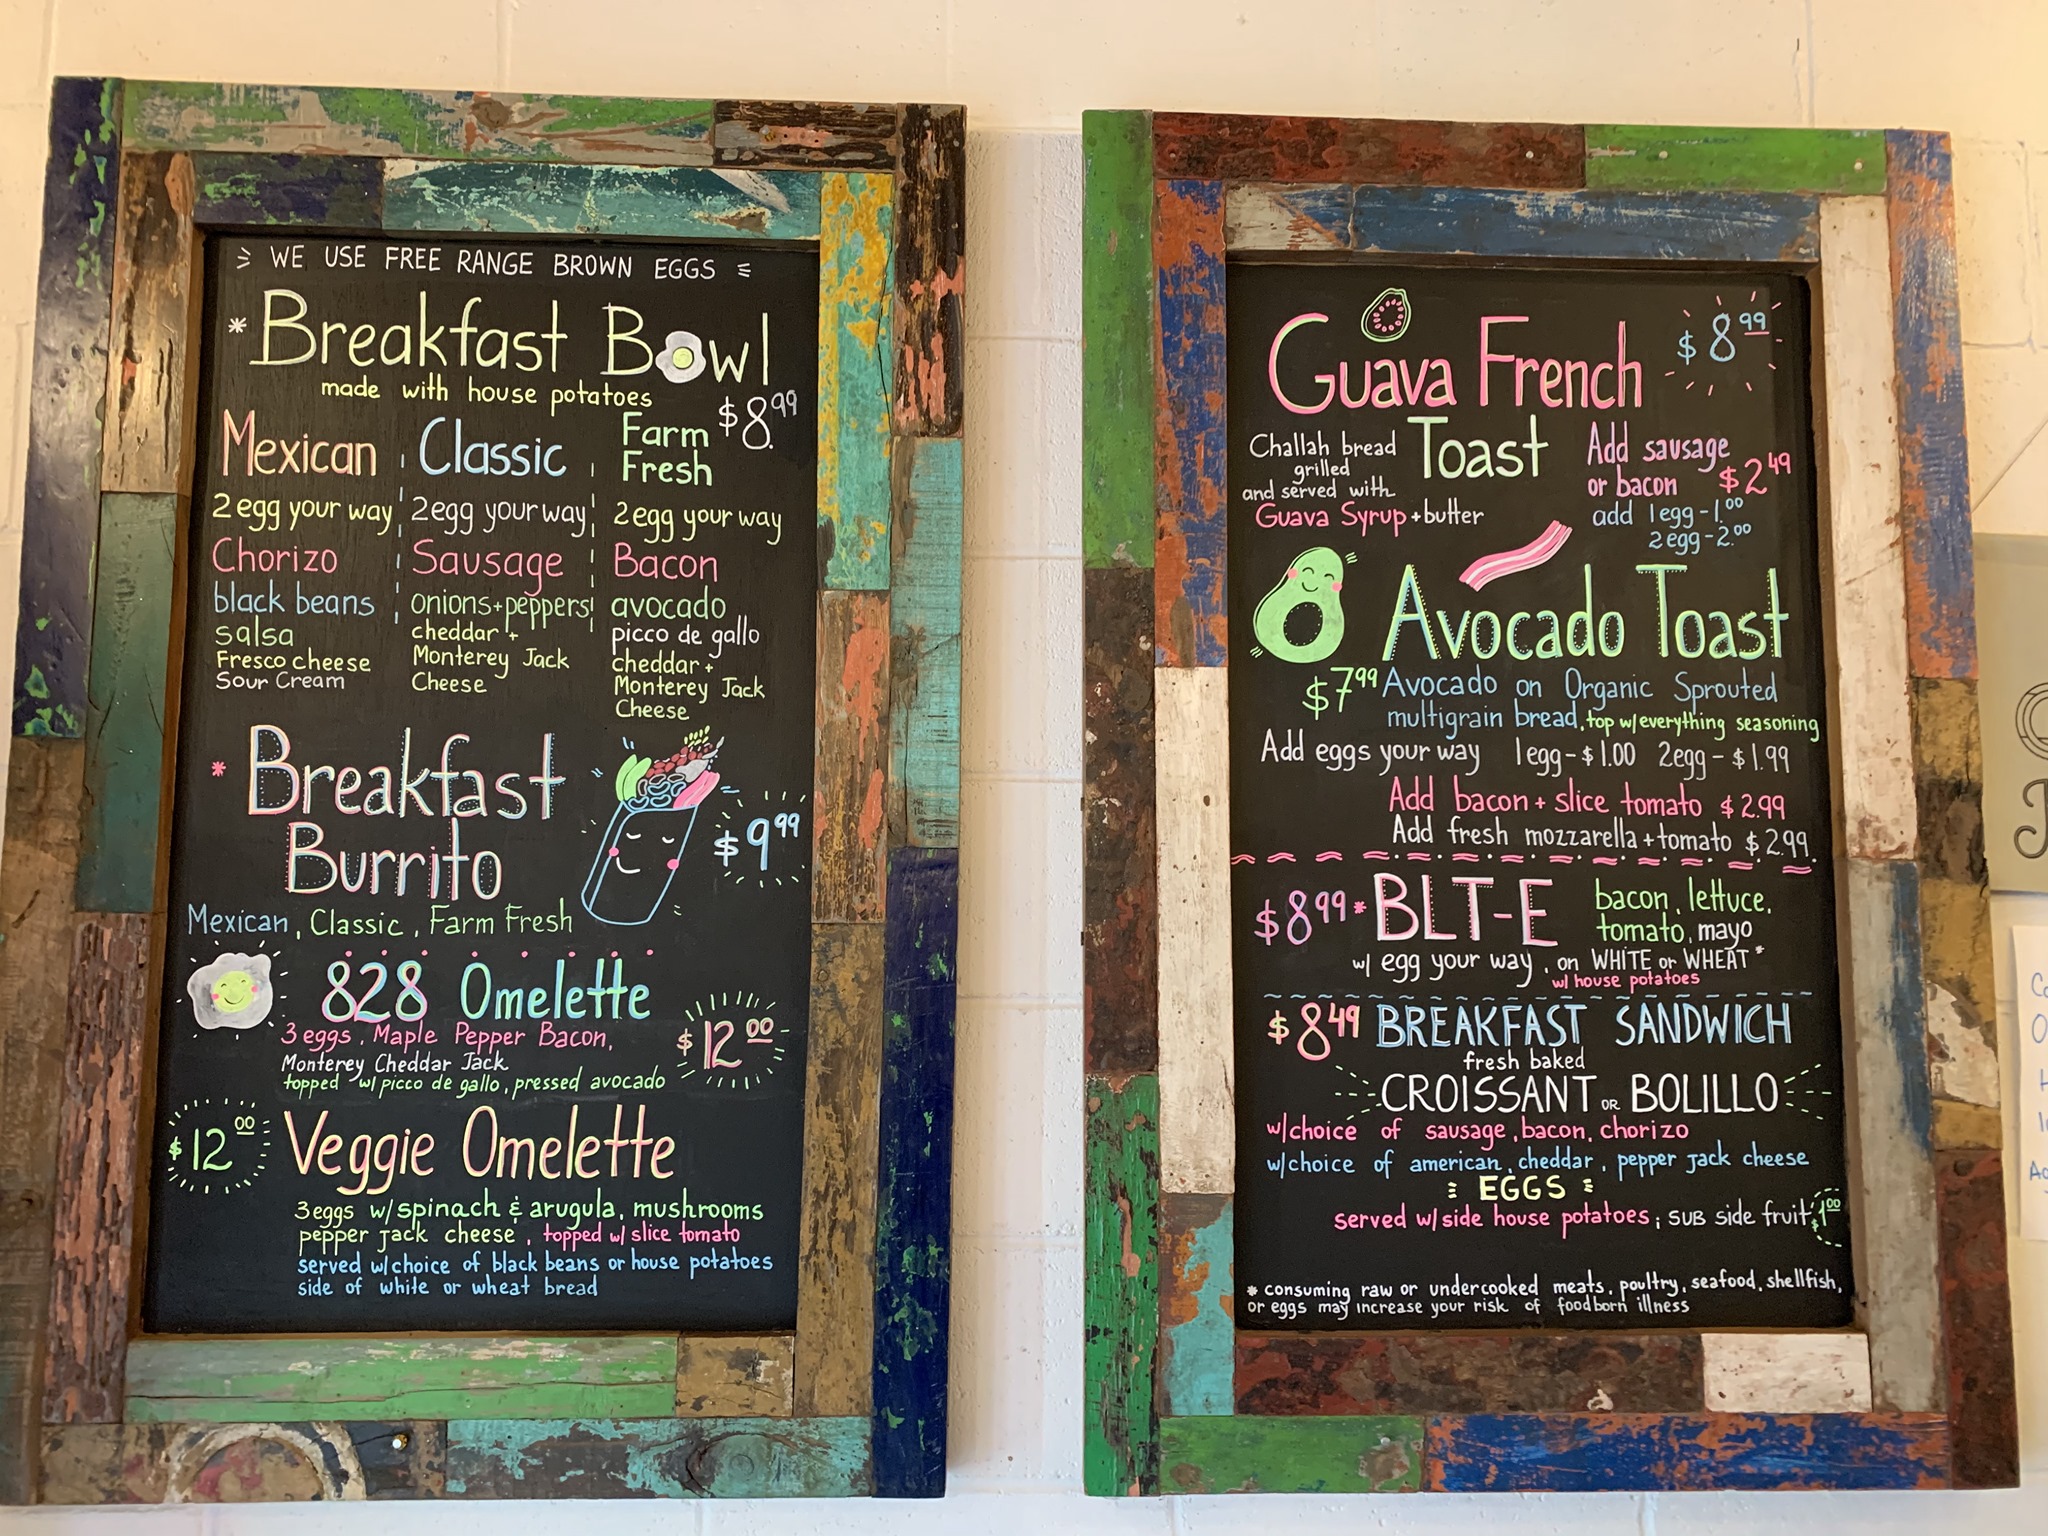 WE USE FREE RANGE BROWN EGGS
* Breakfast Bowl
made with house potatoes
$8.99
Mexican
2 egg your way
Chorizo
black beans
salsa
Fresco cheese
Sour Cream
Classic
2 egg your way
Sausage
onions + peppers
cheddar +
Monterey Jack
Cheese
Farm
Fresh
2 egg your way
Bacon
avocado
picco de gallo
cheddar +
Monterey Jack
Cheese
* Breakfast
Burrito
$9.99
Mexican, Classic, Farm Fresh
828 Omelette
$12.00
3 eggs, Maple Pepper Bacon,
Monterey Cheddar Jack
topped w/ picco de gallo, pressed avocado
$12.00
Veggie Omelette
3 eggs w/ spinach & arugula, mushrooms
pepper jack cheese, topped w/ slice tomato
served w/choice of black beans or house potatoes
side of white or wheat bread
Guava French
Toast
$8.99
Challah bread
grilled
and served with
Guava Syrup + butter
Add sausage
or bacon $2.49
add 1 egg - 1.00
2 egg - 2.00
Avocado Toast
$7.99 Avocado on Organic Sprouted
multigrain bread, top w/everything seasoning
Add eggs your way 1 egg - $1.00 2 egg - $1.99
Add bacon + slice tomato $2.99
Add fresh mozzarella + tomato $2.99
$8.99 * BLT-E
bacon, lettuce,
tomato, mayo
w/ egg your way, on WHITE or WHEAT *
w/ house potatoes
$8.49 BREAKFAST SANDWICH
fresh baked
CROISSANT OR BOLILLO
w/choice of sausage, bacon, chorizo
w/choice of american, cheddar, pepper jack cheese
EGGS
served w/side house potatoes; SUB side fruit $1.00
* consuming raw or undercooked meats, poultry, seafood, shellfish,
or eggs may increase your risk of foodborn illness